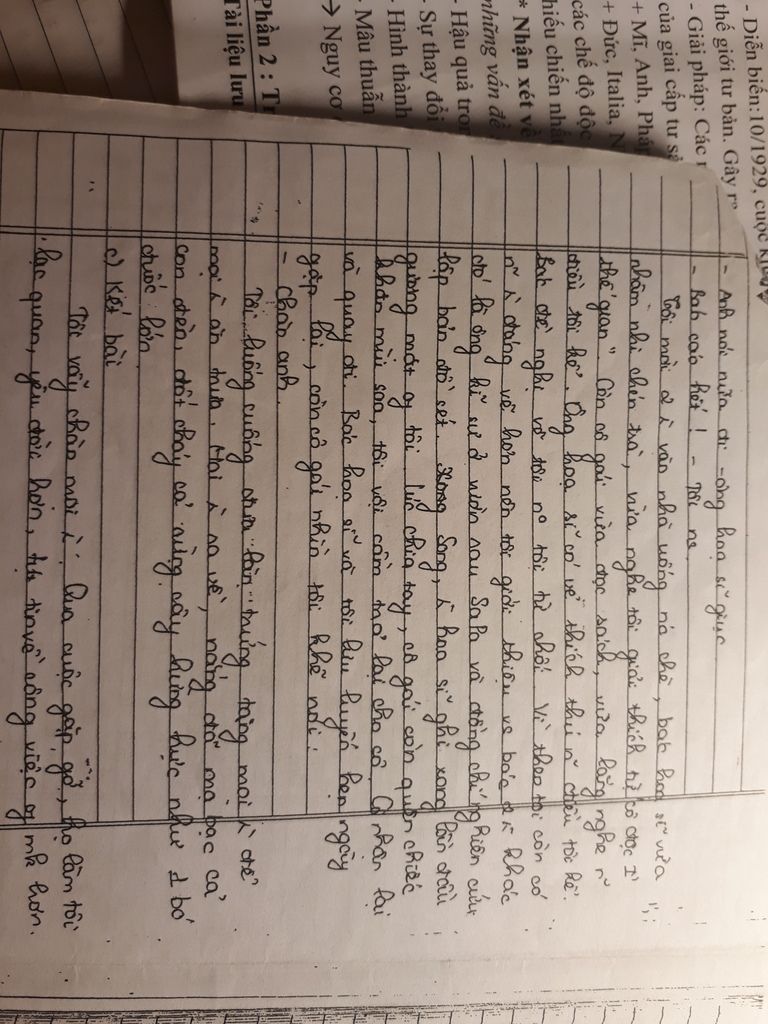 - Diễn biến: 10/1929, cuộc
thế giới tư bản. Gây r
- Giải pháp: Các
của giai cấp tư sả
+ Mĩ, Anh, Phá
+ Đức, Italia, N
các chế độ độc
hiếu chiến nhất
* Nhận xét về
những vấn đề
- Hậu quả trọ
- Sự thay đổi
- Hình thành
- Mâu thuẫn
→ Nguy cơ
Phần 2 : Tr
Tài liệu lưu
- Anh nói nữa đi - ông hoạ sĩ giục
- Bak cáo hết! - Tôi ns
Tôi mời 2 ì vào nhà uống nc chè, bak hoạ sĩ vừa
nhâm nhi chén trà, vừa nghe tôi giải thích từ cô đọc I'
thế gian". Còn cô gái vừa đọc sách, vừa lắng nghe n~
điều tôi kể. Ông hoạ sĩ có vẻ thích thú n~ điều tôi kể.
Bak đề nghị vẽ tôi nº tôi từ chối. Vì theo tôi còn có
n~ ì đáng vẽ hơn nên tôi giới thiệu vs bác 2 ì khác
đó là ông kĩ sư ở vườn rau SaPa và đồng chí nghiên cứu
lập bản đồ sét. Song, ì hoạ sĩ ghi xong lần đầu
gương mặt of tôi lúc chia tay, cô gái còn quên chiếc
khăn mùi soa, tôi vội cầm trả lại cho cô. Cô nhận lại
và quay đi. Bác hoạ sĩ và tôi lưu luyến hẹn ngày
gặp lại, còn cô gái nhìn tôi khẽ nói:
- Chào anh.
Tôi luống cuống đưa làn trứng tặng mọi ì để
mọi ì ăn trưa. Hai ì ra về, nắng đã mạ bạc cả
con đèo, đốt cháy cả rừng cây hừng hực như 1 bó
đuốc lớn.
c) Kết bài
Tôi vẫy chào mọi ì. Qua cuộc gặp gỡ, họ làm tôi
lạc quan, yêu đời hơn, tự tin về công việc of mk hơn.